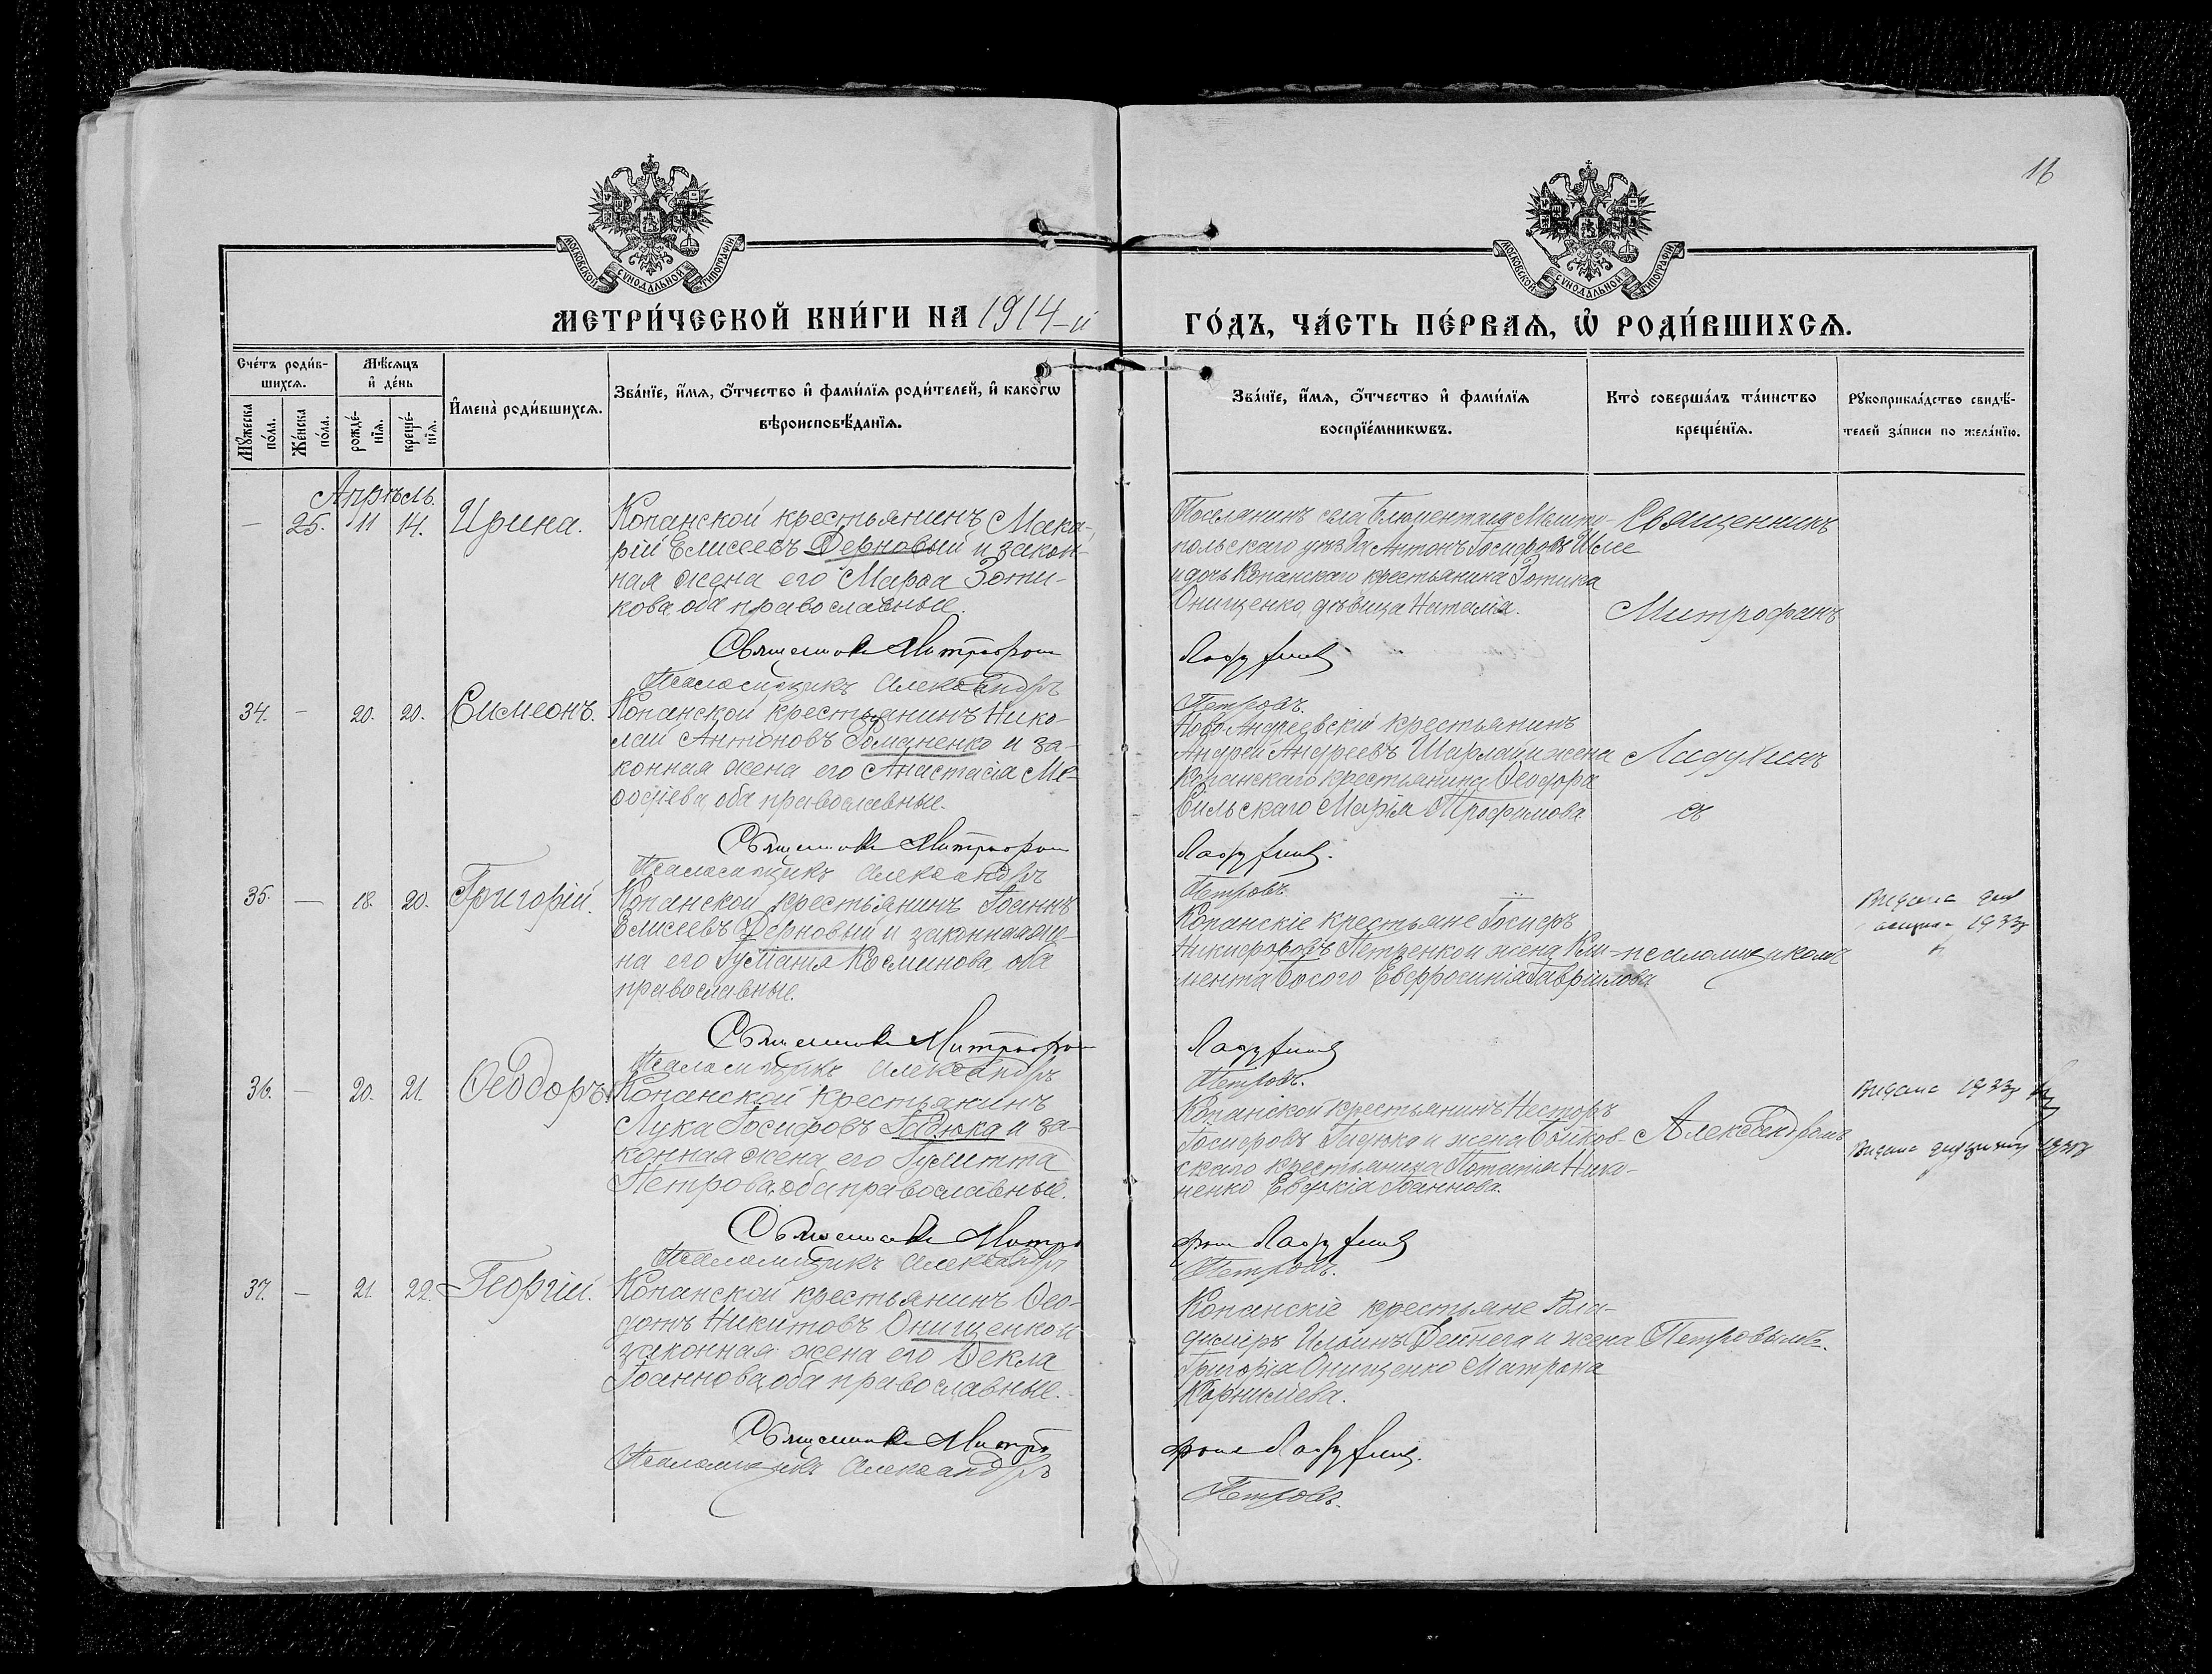 16
МОСКОВСКОЙ СѴНОДАЛЬНОЙ ТИПОГРАФІИ
МОСКОВСКОЙ СѴНОДАЛЬНОЙ ТИПОГРАФІИ
МЕТРИ́ЧЕСКОЙ КНИ́ГИ НА 1914-й
ГО́ДЪ, ЧА́СТЬ ПЕ́РВАѦ, Ѡ РОДИ́ВШИХСѦ.
Сче́тъ роди́в-
шихсѧ.
Мꙋ́жеска по́ла.
Же́нска по́ла.
Мѣ́сѧцъ и҆ де́нь
рожде́-нїѧ.
креще́-нїѧ.
И҆мена̀ роди́вшихсѧ.
Зва́нїе, и҆́мѧ, ѻ҆́тчество и҆ фами́лїѧ роди́телей, и҆ како́гѡ
вѣроисповѣ́данїѧ.
Зва́нїе, и҆́мѧ, ѻ҆́тчество и҆ фами́лїѧ
воспрїе́мникѡвъ.
Кто̀ соверша́лъ та́инство
креще́нїѧ.
Рꙋкоприкла́дство свидѣ́-
телей за́писи по жела́нїю.
Апрѣль.
— 25. 11 14. Ирина.
Копанской крестьянинъ Мака-
рій Елисеевъ Дерновый и закон-
ная жена его Марѳа Зоти-
кова, оба православные.
Священникъ Митрофанъ
Псаломщикъ Александръ
Поселянинъ села Блюменталя Мелито-
польскаго уѣзда Антонъ Іосифовъ
и дочь Копанскаго крестьянина Зотика
Онищенко, дѣвица Наталія.
Петровъ.
Священникъ
Митрофанъ
34. — 20. 20. Симеонъ.
Копанской крестьянинъ Нико-
лай Антоновъ Романенко и за-
конная жена его Анастасія Ме-
ѳодіева, оба православные.
Священникъ Митрофанъ
Псаломщикъ Александръ
Ново-Андреевскій крестьянинъ
Андрей Андреевъ Шарлай и жена
Копанскаго крестьянина Ѳеодора
Сильскаго Марія Трофимова
Петровъ.
съ
35. — 18. 20. Григорій.
Копанской крестьянинъ Іоаннъ
Елисеевъ Дерновый и законная же-
на его Іуліанія Косминова, оба
православные.
Священникъ Митрофанъ
Псаломщикъ Александръ
Копанскіе крестьяне Іосифъ
Никифоровъ Петренко и жена Кли-
мента Босого Евфросинія Гавріилова
Петровъ.
псаломщикомъ
1933
36. — 20. 21. Ѳеодоръ.
Копанской крестьянинъ
Лука Іосифовъ Гадюка и за-
конная жена его Іулитта
Петрова, оба православные.
Священникъ Митро
Псаломщикъ Александръ
Копанской крестьянинъ Несторъ
Іосифовъ Гадюка и жена
скаго крестьянина Потапія
ненко Евдокія Іоаннова.
фанъ
Петровъ.
Александромъ
Видана 1933
37. — 21. 22. Георгій.
Копанской крестьянинъ Ѳео-
дотъ Никитовъ Онищенко и
законная жена его Ѳекла
Іоаннова, оба православные.
Священникъ Митро
Псаломщикъ Александръ
Копанскіе крестьяне Вла-
димиръ Ильинъ Дейнега и жена
Григорія Онищенко Матрона
Корнилиева.
фанъ
Петровъ.
Петровымъ.